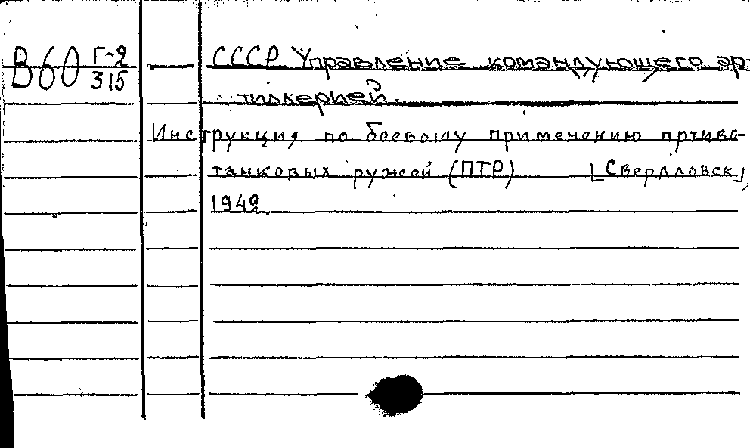 В60 Г-2/315 СССР Управление командующего ар-
тиллерией.
Инструкция по боевому применению противо-
танковых ружей (ПТР) [Свердловск],
1942